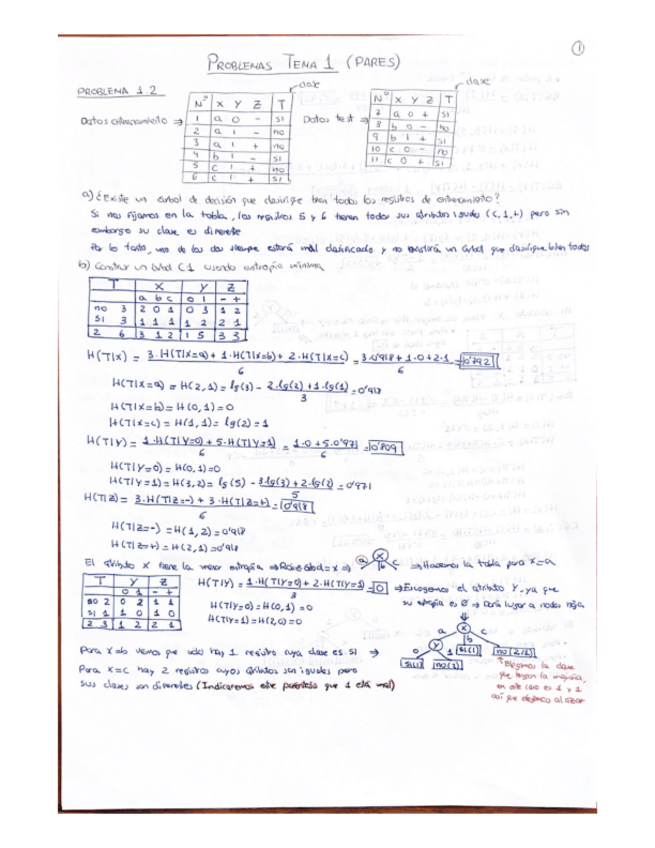 ①
PROBLEMAS TEMA 1 (PARES)
PROBLEMA 1.2
clase
clase
Datos entrenamiento ⇒
Nº X Y Z T
1 a 0 - si
2 a 1 - no
3 a 1 + no
4 b 1 - si
5 c 1 + no
6 c 1 + si
Datos test ⇒
Nº X Y Z T
7 a 0 + si
8 b 0 - no
9 b 1 + si
10 c 0 - no
11 c 0 + si
a) ¿Existe un árbol de decisión que clasifique bien todos los registros de entrenamiento?
Si nos fijamos en la tabla, los registros 5 y 6 tienen todos sus atributos iguales (c,1,+) pero sin
embargo su clase es diferente
Por lo tanto, uno de los dos siempre estará mal clasificado y no existirá un árbol que clasifique bien todos
b) Construir un árbol C1 usando entropía mínima
T X Y Z
a b c 0 1 - +
no 3 2 0 1 0 3 1 2
si 3 1 1 1 1 2 2 1
2 6 3 1 2 1 5 3 3
H(T|X) = 3·H(T|X=a) + 1·H(T|X=b) + 2·H(T|X=c) / 6 = 3·0'918 + 1·0 + 2·1 / 6 = 0'792
H(T|X=a) = H(2,1) = lg(3) - 2·lg(2) + 1·lg(1) / 3 = 0'918
H(T|X=b) = H(0,1) = 0
H(T|X=c) = H(1,1) = lg(2) = 1
H(T|Y) = 1·H(T|Y=0) + 5·H(T|Y=1) / 6 = 1·0 + 5·0'971 / 6 = 0'809
H(T|Y=0) = H(0,1) = 0
H(T|Y=1) = H(3,2) = lg(5) - 3·lg(3) + 2·lg(2) / 5 = 0'971
H(T|Z) = 3·H(T|Z=-) + 3·H(T|Z=+) / 6 = 0'918
H(T|Z=-) = H(1,2) = 0'918
H(T|Z=+) = H(2,1) = 0'918
El atributo X tiene la menor entropía ⇒ Raíz árbol = X ⇒ a X b c ⇒ Hacemos la tabla para X=a
T Y Z
0 1 - +
no 2 0 2 1 1
si 1 1 0 1 0
2 3 1 2 2 1
H(T|Y) = 1·H(T|Y=0) + 2·H(T|Y=1) / 3 = 0 ⇒ Escogemos el atributo Y, ya que
su entropía es 0 ⇒ Dará lugar a nodos hoja
H(T|Y=0) = H(0,1) = 0
H(T|Y=1) = H(2,0) = 0
X
a b c
Y
0 1
si(1) no(2) si(1) no(2/1)
Para X=b vemos que solo hay 1 registro cuya clase es si ⇒
Para X=c hay 2 registros cuyos atributos son iguales pero
sus clases son diferentes (Indicaremos entre paréntesis que 1 está mal)
Elegimos la clase
que tengan la mayoría,
en este caso es 1 y 1
así que elegimos al azar